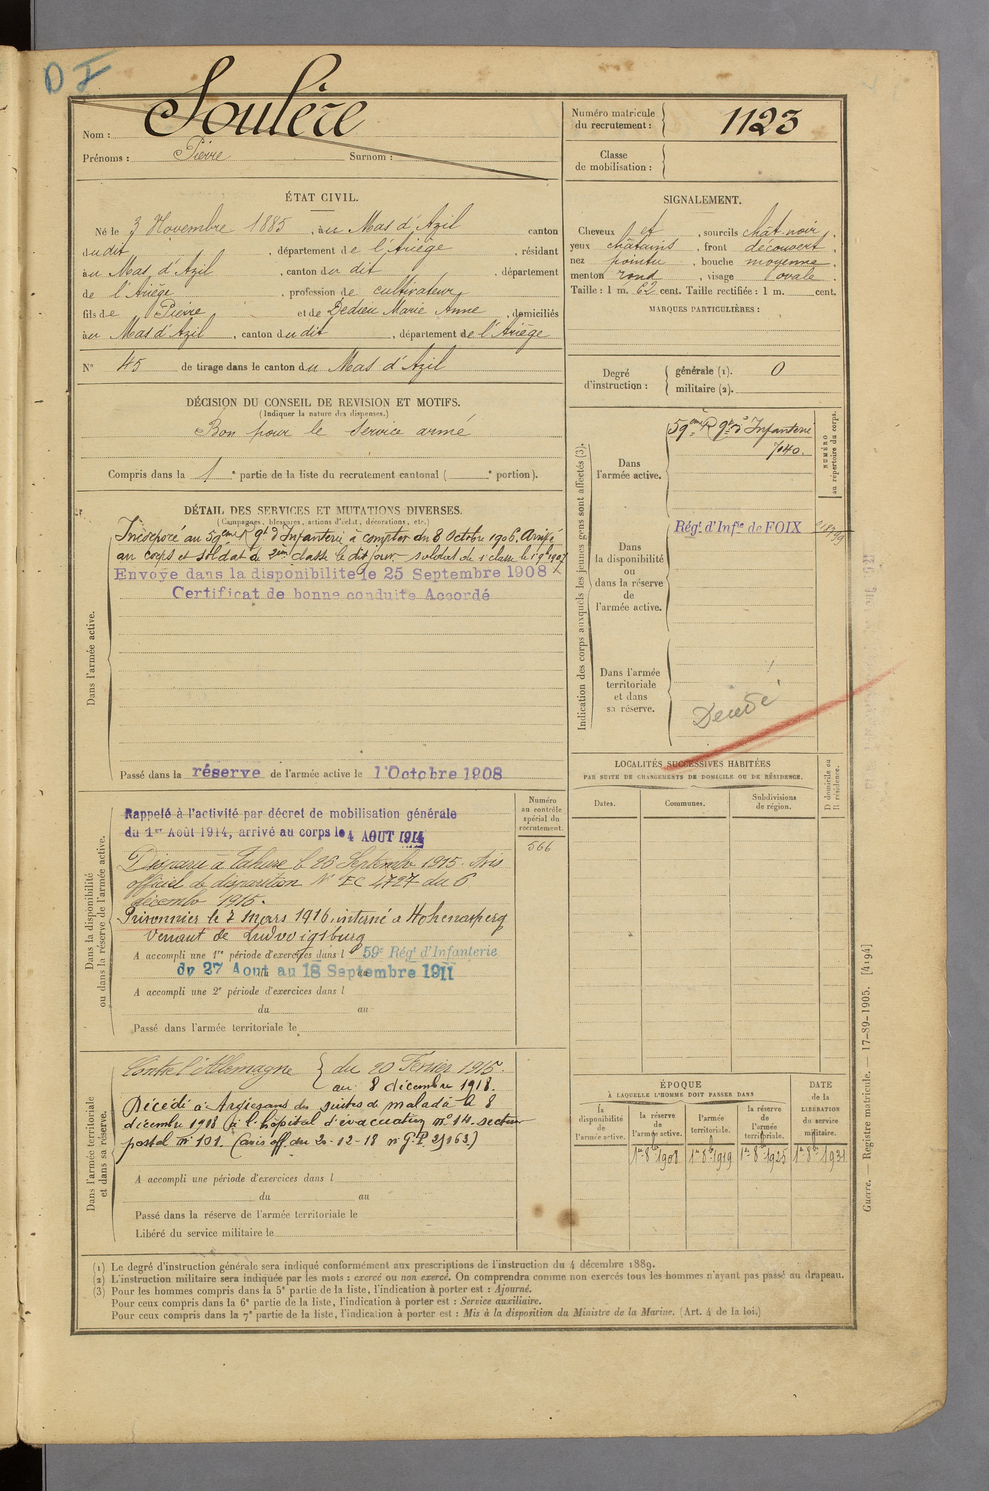 D I
Soulère
Nom :
Prénoms : Pierre Surnom :
Numéro matricule du recrutement : 1123
Classe de mobilisation :
ÉTAT CIVIL.
Né le 3 Novembre 1885, au Mas d'Azil canton
du dit, département de l'Ariège, résidant
au Mas d'Azil, canton du dit, département
de l'Ariège, profession de cultivateur,
fils de Pierre et de Dedieu Marie Anne, domiciliés
au Mas d'Azil, canton du dit, département de l'Ariège
N° 45 de tirage dans le canton du Mas d'Azil
SIGNALEMENT.
Cheveux et, sourcils chât noir,
yeux châtains, front découvert,
nez pointu, bouche moyenne,
menton rond, visage ovale.
Taille : 1 m. 62 cent. Taille rectifiée : 1 m. cent.
MARQUES PARTICULIÈRES :
Degré d'instruction :
générale (1). 0
militaire (2).
DÉCISION DU CONSEIL DE REVISION ET MOTIFS.
(Indiquer la nature des dispenses.)
Bon pour le service armé
Compris dans la 1e partie de la liste du recrutement cantonal ( e portion).
DÉTAIL DES SERVICES ET MUTATIONS DIVERSES.
(Campagnes, blessures, actions d'éclat, décorations, etc.)
Dans l'armée active.
Incorporé au 59ème Rgt d'Infanterie à compter du 8 Octobre 1906. Arrivé
au corps et soldat de 2ème classe le dit jour
Envoyé dans la disponibilité le 25 Septembre 1908
Certificat de bonne conduite Accordé
Passé dans la réserve de l'armée active le 1 Octobre 1908
Indication des corps auxquels les jeunes gens sont affectés (3).
Dans l'armée active.
59ème Rgt d'Infanterie
7040.
NUMÉRO au répertoire du corps.
Dans la disponibilité ou dans la réserve de l'armée active.
Régt d'Infie de FOIX
Dans l'armée territoriale et dans sa réserve.
Décédé
Dans la disponibilité ou dans la réserve de l'armée active.
Numéro au contrôle spécial du recrutement.
566
Rappelé à l'activité par décret de mobilisation générale
du 1er Août 1914, arrivé au corps le 4 AOUT 1914
Disparu à Tahure le 26 Septembre 1915. Avis
officiel de disparition N° EC 4727 du 6
décembre 1915.
Prisonnier le 7 Mars 1916, interné à Hohenasperg
venant de Ludwigsburg
A accompli une 1re période d'exercices dans l 59e Régt d'Infanterie
du 27 Aout au 18 Septembre 1911
A accompli une 2e période d'exercices dans l
du au
Passé dans l'armée territoriale le
Dans l'armée territoriale et dans sa réserve.
Contre l'Allemagne { du 20 Fevrier 1915.
au 8 décembre 1918.
Décédé à Argiesans des suites de maladie le 8
décembre 1918 (à l'hôpital d'évacuation n° 14. secteur
postal n° 101. (avis off. du 20-12-18
A accompli une période d'exercices dans l
du au
Passé dans la réserve de l'armée territoriale le
Libéré du service militaire le
LOCALITÉS SUCCESSIVES HABITÉES
PAR SUITE DE CHANGEMENTS DE DOMICILE OU DE RÉSIDENCE.
Dates. Communes. Subdivisions de région. D domicile ou R résidence.
ÉPOQUE
À LAQUELLE L'HOMME DOIT PASSER DANS
la disponibilité de l'armée active.
la réserve de l'armée active.
l'armée territoriale.
la réserve de l'armée territoriale.
DATE de la LIBÉRATION du service militaire.
1er 8bre 1908 1er 8bre 1919 1er 8bre 1925 1er 8bre 1931
(1) Le degré d'instruction générale sera indiqué conformément aux prescriptions de l'instruction du 4 décembre 1889.
(2) L'instruction militaire sera indiquée par les mots : exercé ou non exercé. On comprendra comme non exercés tous les hommes n'ayant pas passé au drapeau.
(3) Pour les hommes compris dans la 5e partie de la liste, l'indication à porter est : Ajourné.
Pour ceux compris dans la 6e partie de la liste, l'indication à porter est : Service auxiliaire.
Pour ceux compris dans la 7e partie de la liste, l'indication à porter est : Mis à la disposition du Ministre de la Marine. (Art. 4 de la loi.)
Guerre. — Registre matricule. — 17-89-1905. [4194]